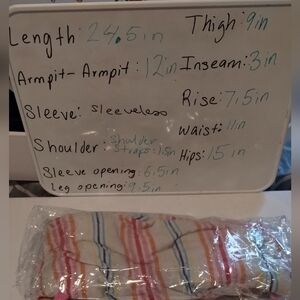 Length: 24.5in
Armpit-Armpit: 12in
Sleeve: Sleeveless
Shoulder: Shoulder
straps: 1.5in
Sleeve opening: 6.5in
Leg opening: 9.5in
Thigh: 9in
Inseam: 3in
Rise: 7.5in
Waist: 11in
Hips: 15in